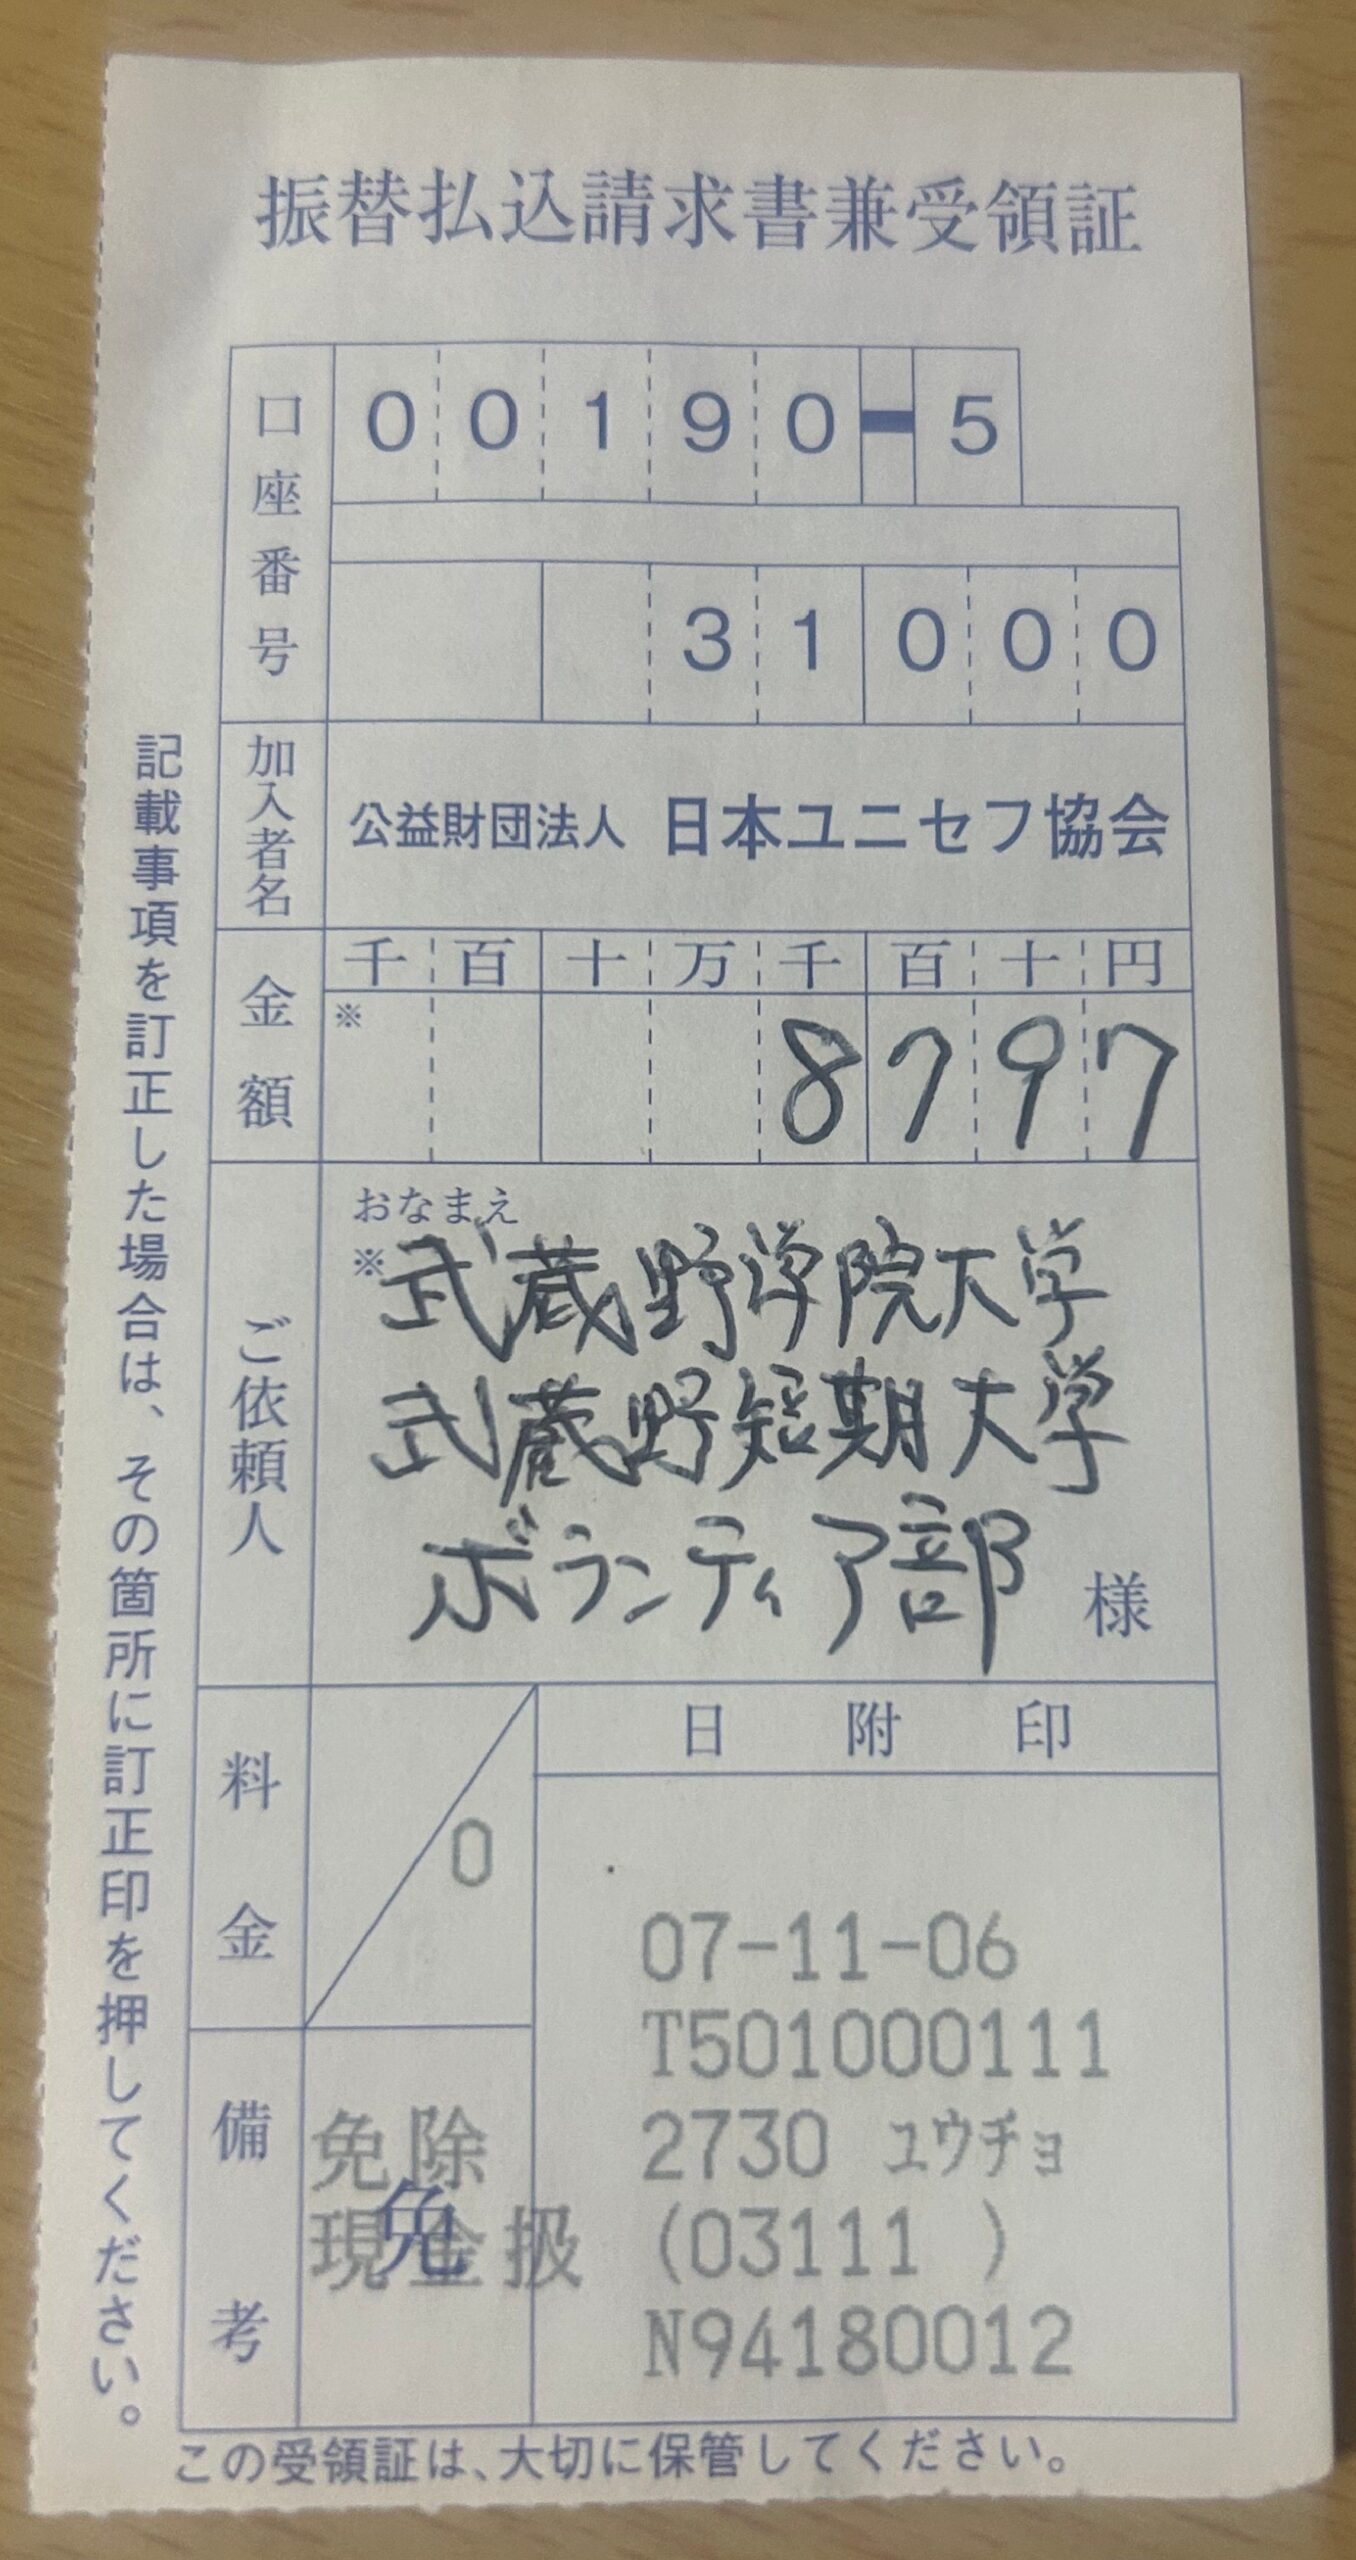 振替払込請求書兼受領証
口座番号
00190-5
31000
加入者名
公益財団法人 日本ユニセフ協会
金額
千 百 十 万 千 百 十 円
※ 8797
ご依頼人
おなまえ
※武蔵野学院大学
武蔵野短期大学
ボランティア部 様
料金
0
日附印
07-11-06
T501000111
2730 ユウチョ
(03111 )
N94180012
備考
免除
現金扱
免
記載事項を訂正した場合は、その箇所に訂正印を押してください。
この受領証は、大切に保管してください。